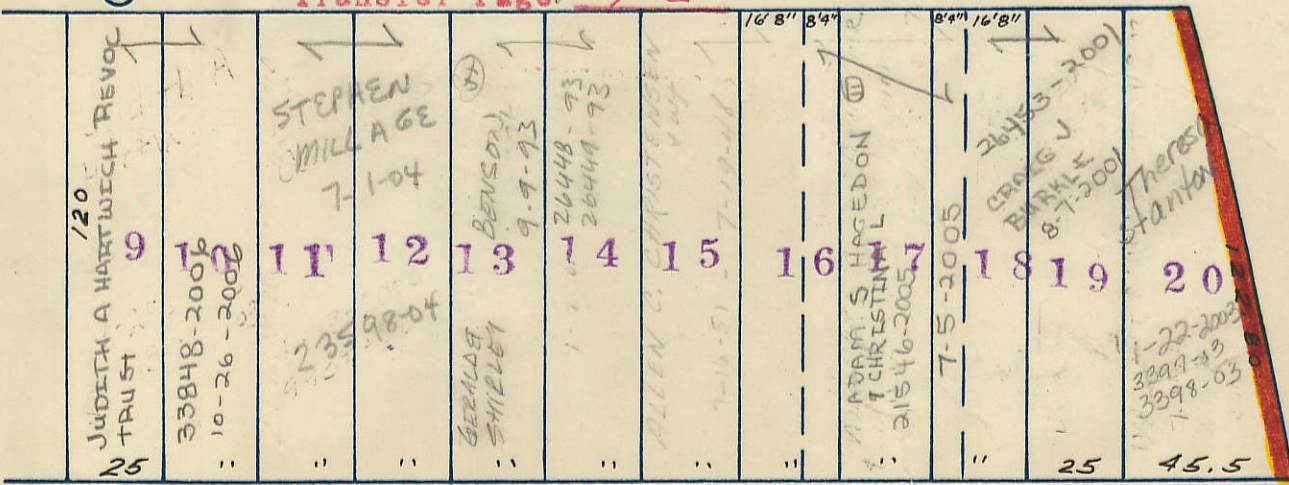 Transfer Page
16'8" 8'4" 8'4" 16'8"
120
JUDITH A HARTWICH REVOC
TRUST
9
25
10
33848-2006
10-26-2006
"
STEPHEN
MILLAGE
7-1-04
11
12
23598-04
"
"
BENSON
9-9-93
13
GERALD &
SHIRLEY
"
26448-93
26449-93
14
"
ALLEN C. CHRISTENSEN
7-19-48
15
7-16-51
"
16
"
ADAM S HAGEDON
& CHRISTINA L
21546-2005
17
"
7-5-2005
18
"
26453-2001
CRAIG J
BURKLE
8-7-2001
19
25
Theresa
Stanton
20
1-22-2003
3397-03
3398-03
45.5